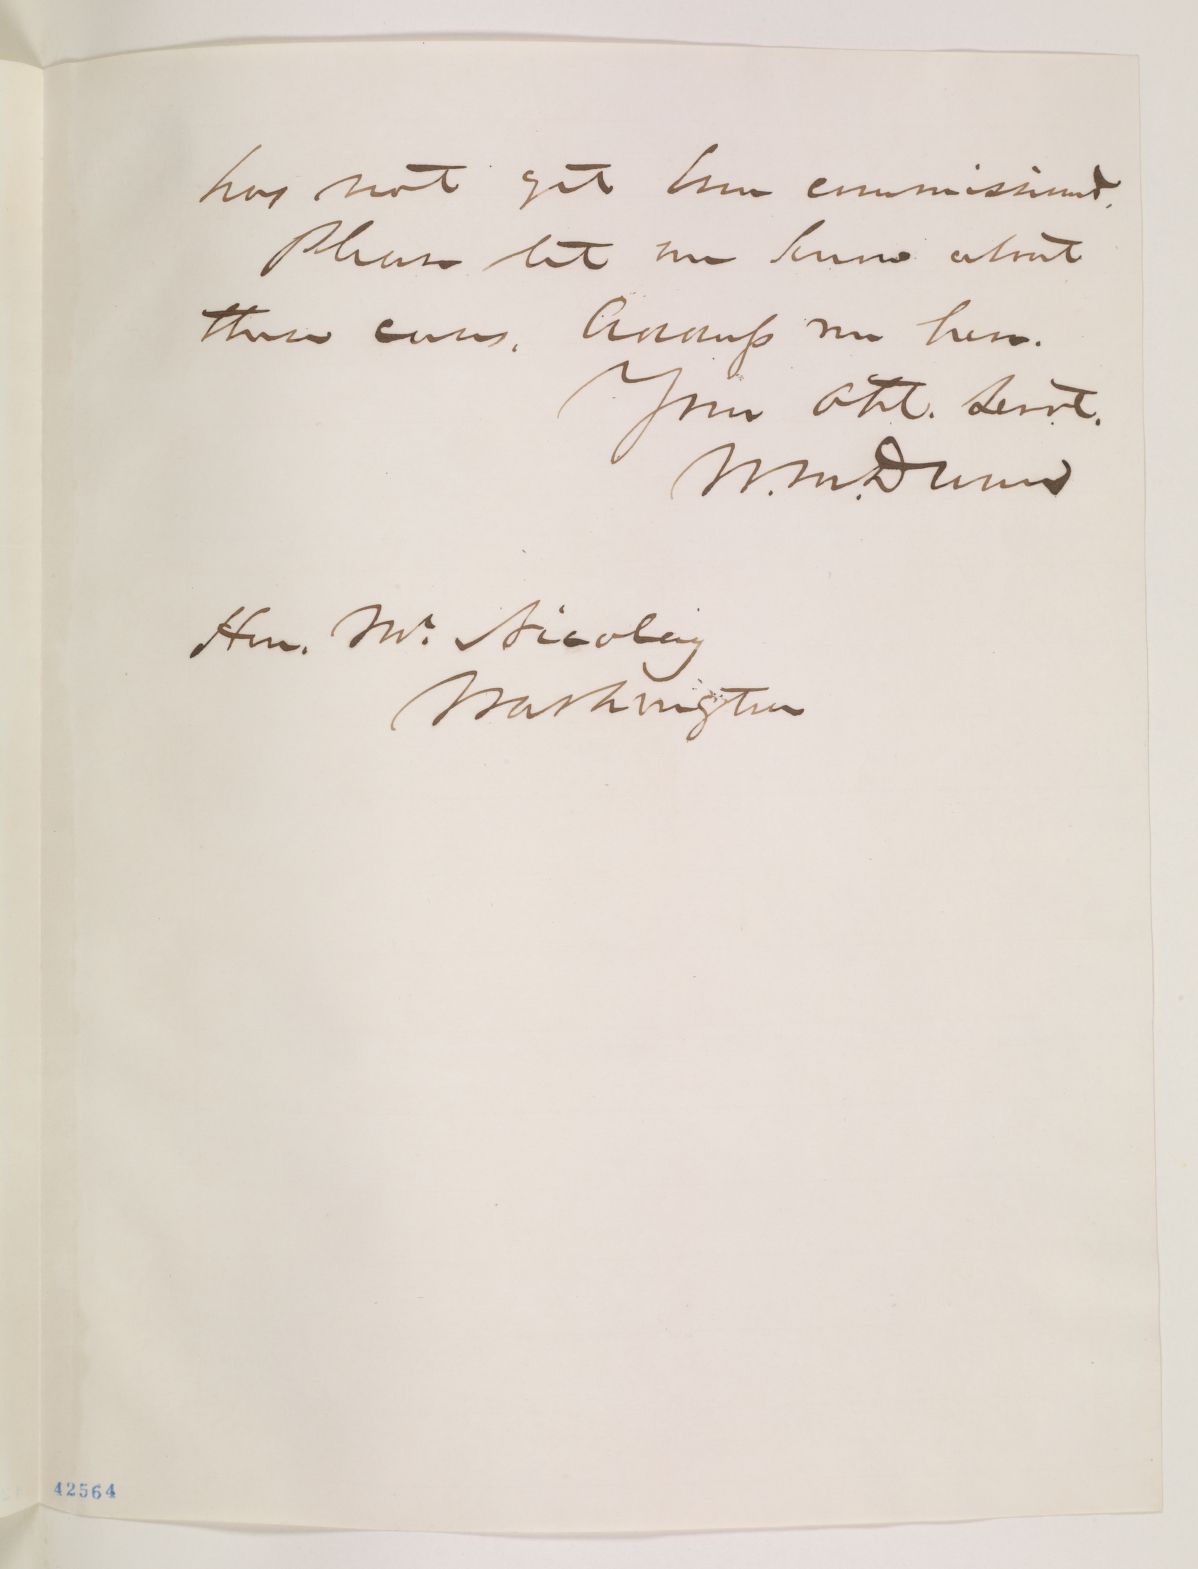 has not yet been commissioned.
Please let me know about
these cases. Address me here.
Your Obt. Servt.
W. M. Dunn
Hon. Mr. Nicolay
Washington
42564